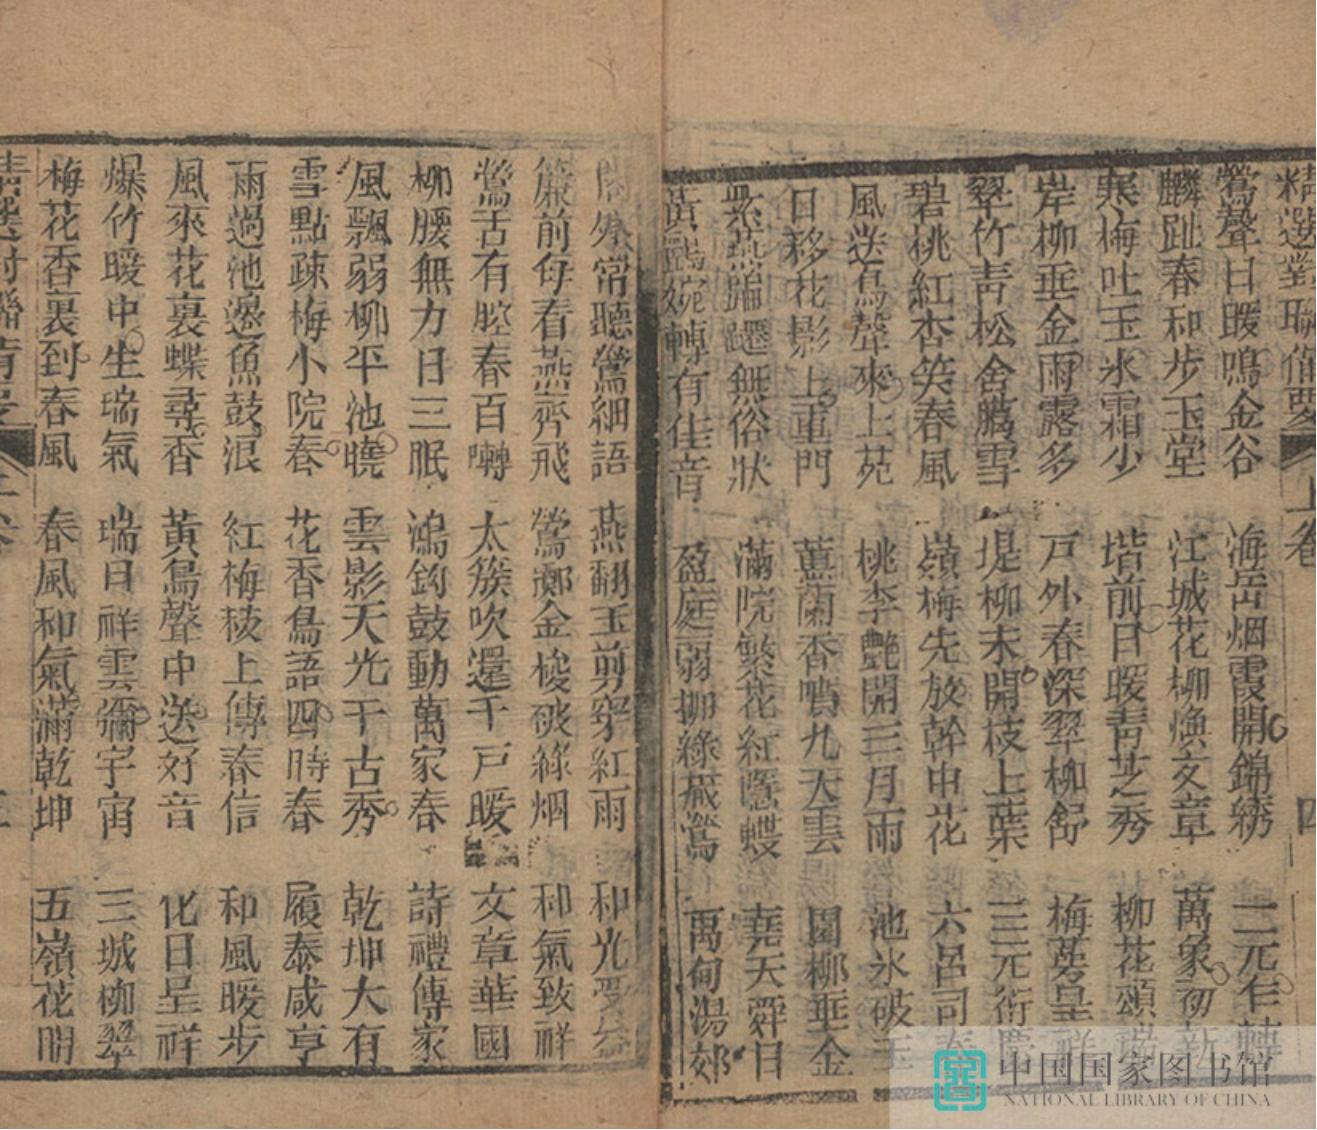 精選對聯備要 上卷 四
鶯聲日暖鳴金谷 海岳烟霞開錦綉 二元乍轉
麟趾春和步玉堂 江城花柳煥文章 萬象初新
寒梅吐玉氷霜少 堦前日暖靑芝秀 柳花頌
岸柳垂金雨露多 戸外春深翠柳舒 梅萼呈祥
翠竹靑松舍臈雪 堤柳未開枝上葉 三元衍慶
碧桃紅杏笑春風 嶺梅先放幹中花 六呂司春
風送鳥聲來上苑 桃李艷開三月雨 池氷破玉
日移花影上重門 蕙蘭香噴九天雲 園柳垂金
紫燕蹁躚無俗狀 滿院繁花紅隱蝶 堯天舜日
黃鸝婉轉有佳音 盈庭弱柳綠藏鶯 禹甸湯郊
閣外常聽鶯細語 燕翻玉剪穿紅雨 和光受益
簾前每看燕齊飛 鶯擲金梭破綠烟 和氣致祥
鶯舌有腔春百囀 太簇吹還千戸暖 文章華國
柳腰無力日三眠 鴻鈞鼓動萬家春 詩禮傳家
風飄弱柳平池曉 雲影天光千古秀 乾坤大有
雪點疎梅小院春 花香鳥語四時春 履泰咸亨
雨過池邊魚鼓浪 紅梅枝上傳春信 和風暖步
風來花裏蝶尋香 黃鳥聲中送好音 化日呈祥
爆竹暖中生瑞氣 瑞日祥雲彌宇宙 三城柳翠
梅花香裏到春風 春風和氣滿乾坤 五嶺花明